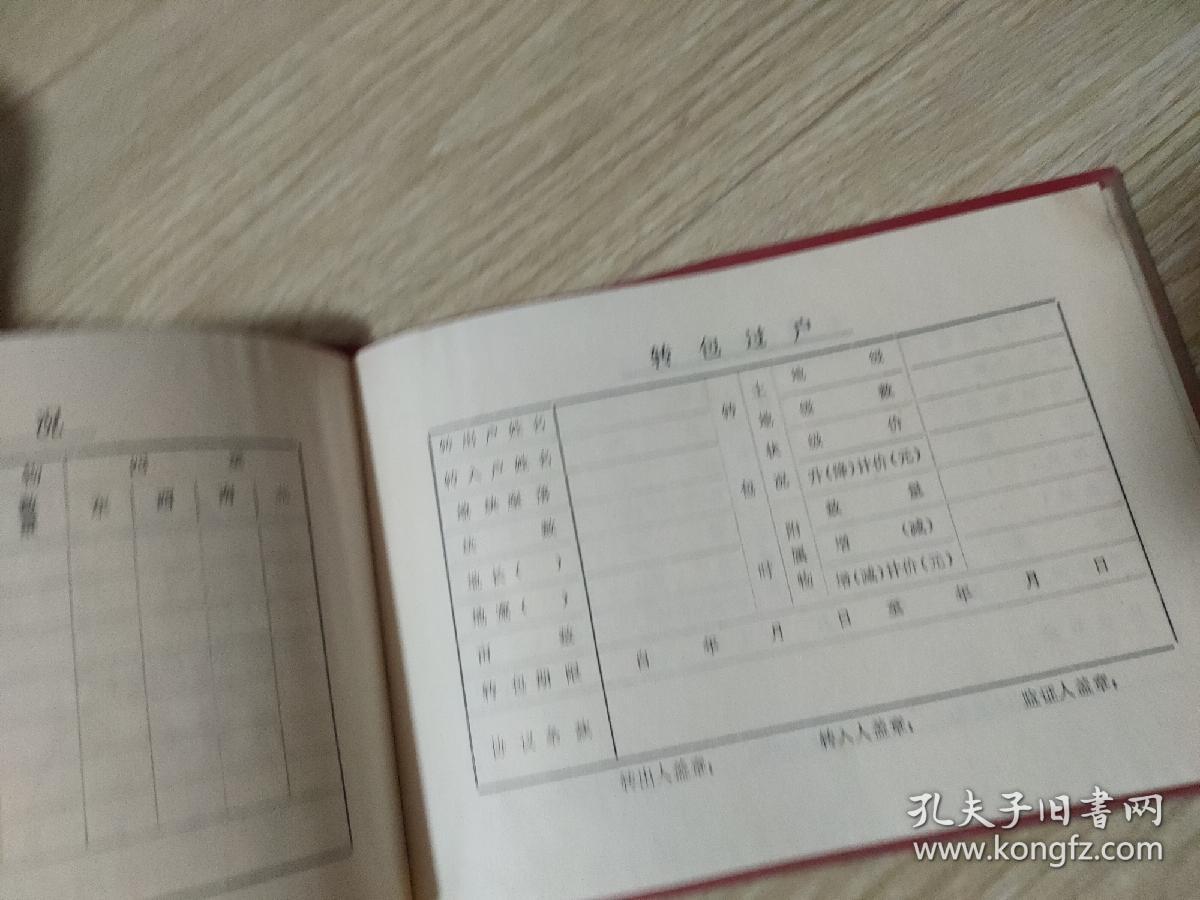 况
物 四 至
数量 东 西 南 北
转包过户
转出户姓名
转入户姓名
地块座落
块数
地长( )
地宽( )
亩数
转包期限 自 年 月 日至 年 月 日
协议条款
转包时
土地状况
地级
级数
级价
升(降)计价(元)
附属物
数量
增(减)
增(减)计价(元)
转出人盖章: 转入人盖章: 监证人盖章:
孔夫子旧书网
www.kongfz.com